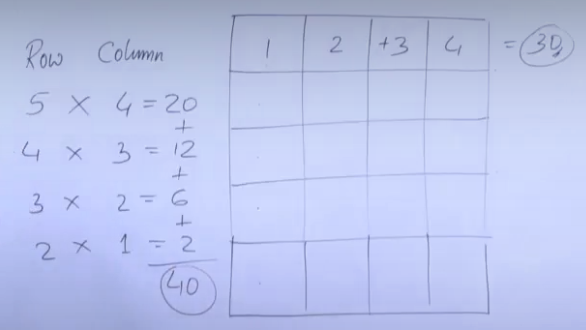 Row Column
5 × 4 = 20
+
4 × 3 = 12
+
3 × 2 = 6
+
2 × 1 = 2
40
1 2 +3 4 = 30